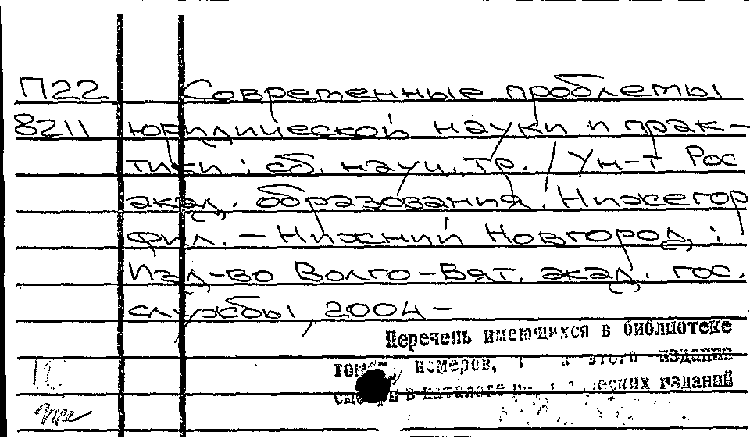 П22 Современные проблемы
8211 юридической науки и прак-
тики : сб. науч. тр. / Ун-т Рос
акад. образования. Нижегор
фил. – Нижний Новгород :
Изд-во Волго-Вят. акад. гос.
службы, 2004 –
Перечень имеющихся в библиотеке
номеров, этого издания
в каталоге изданий